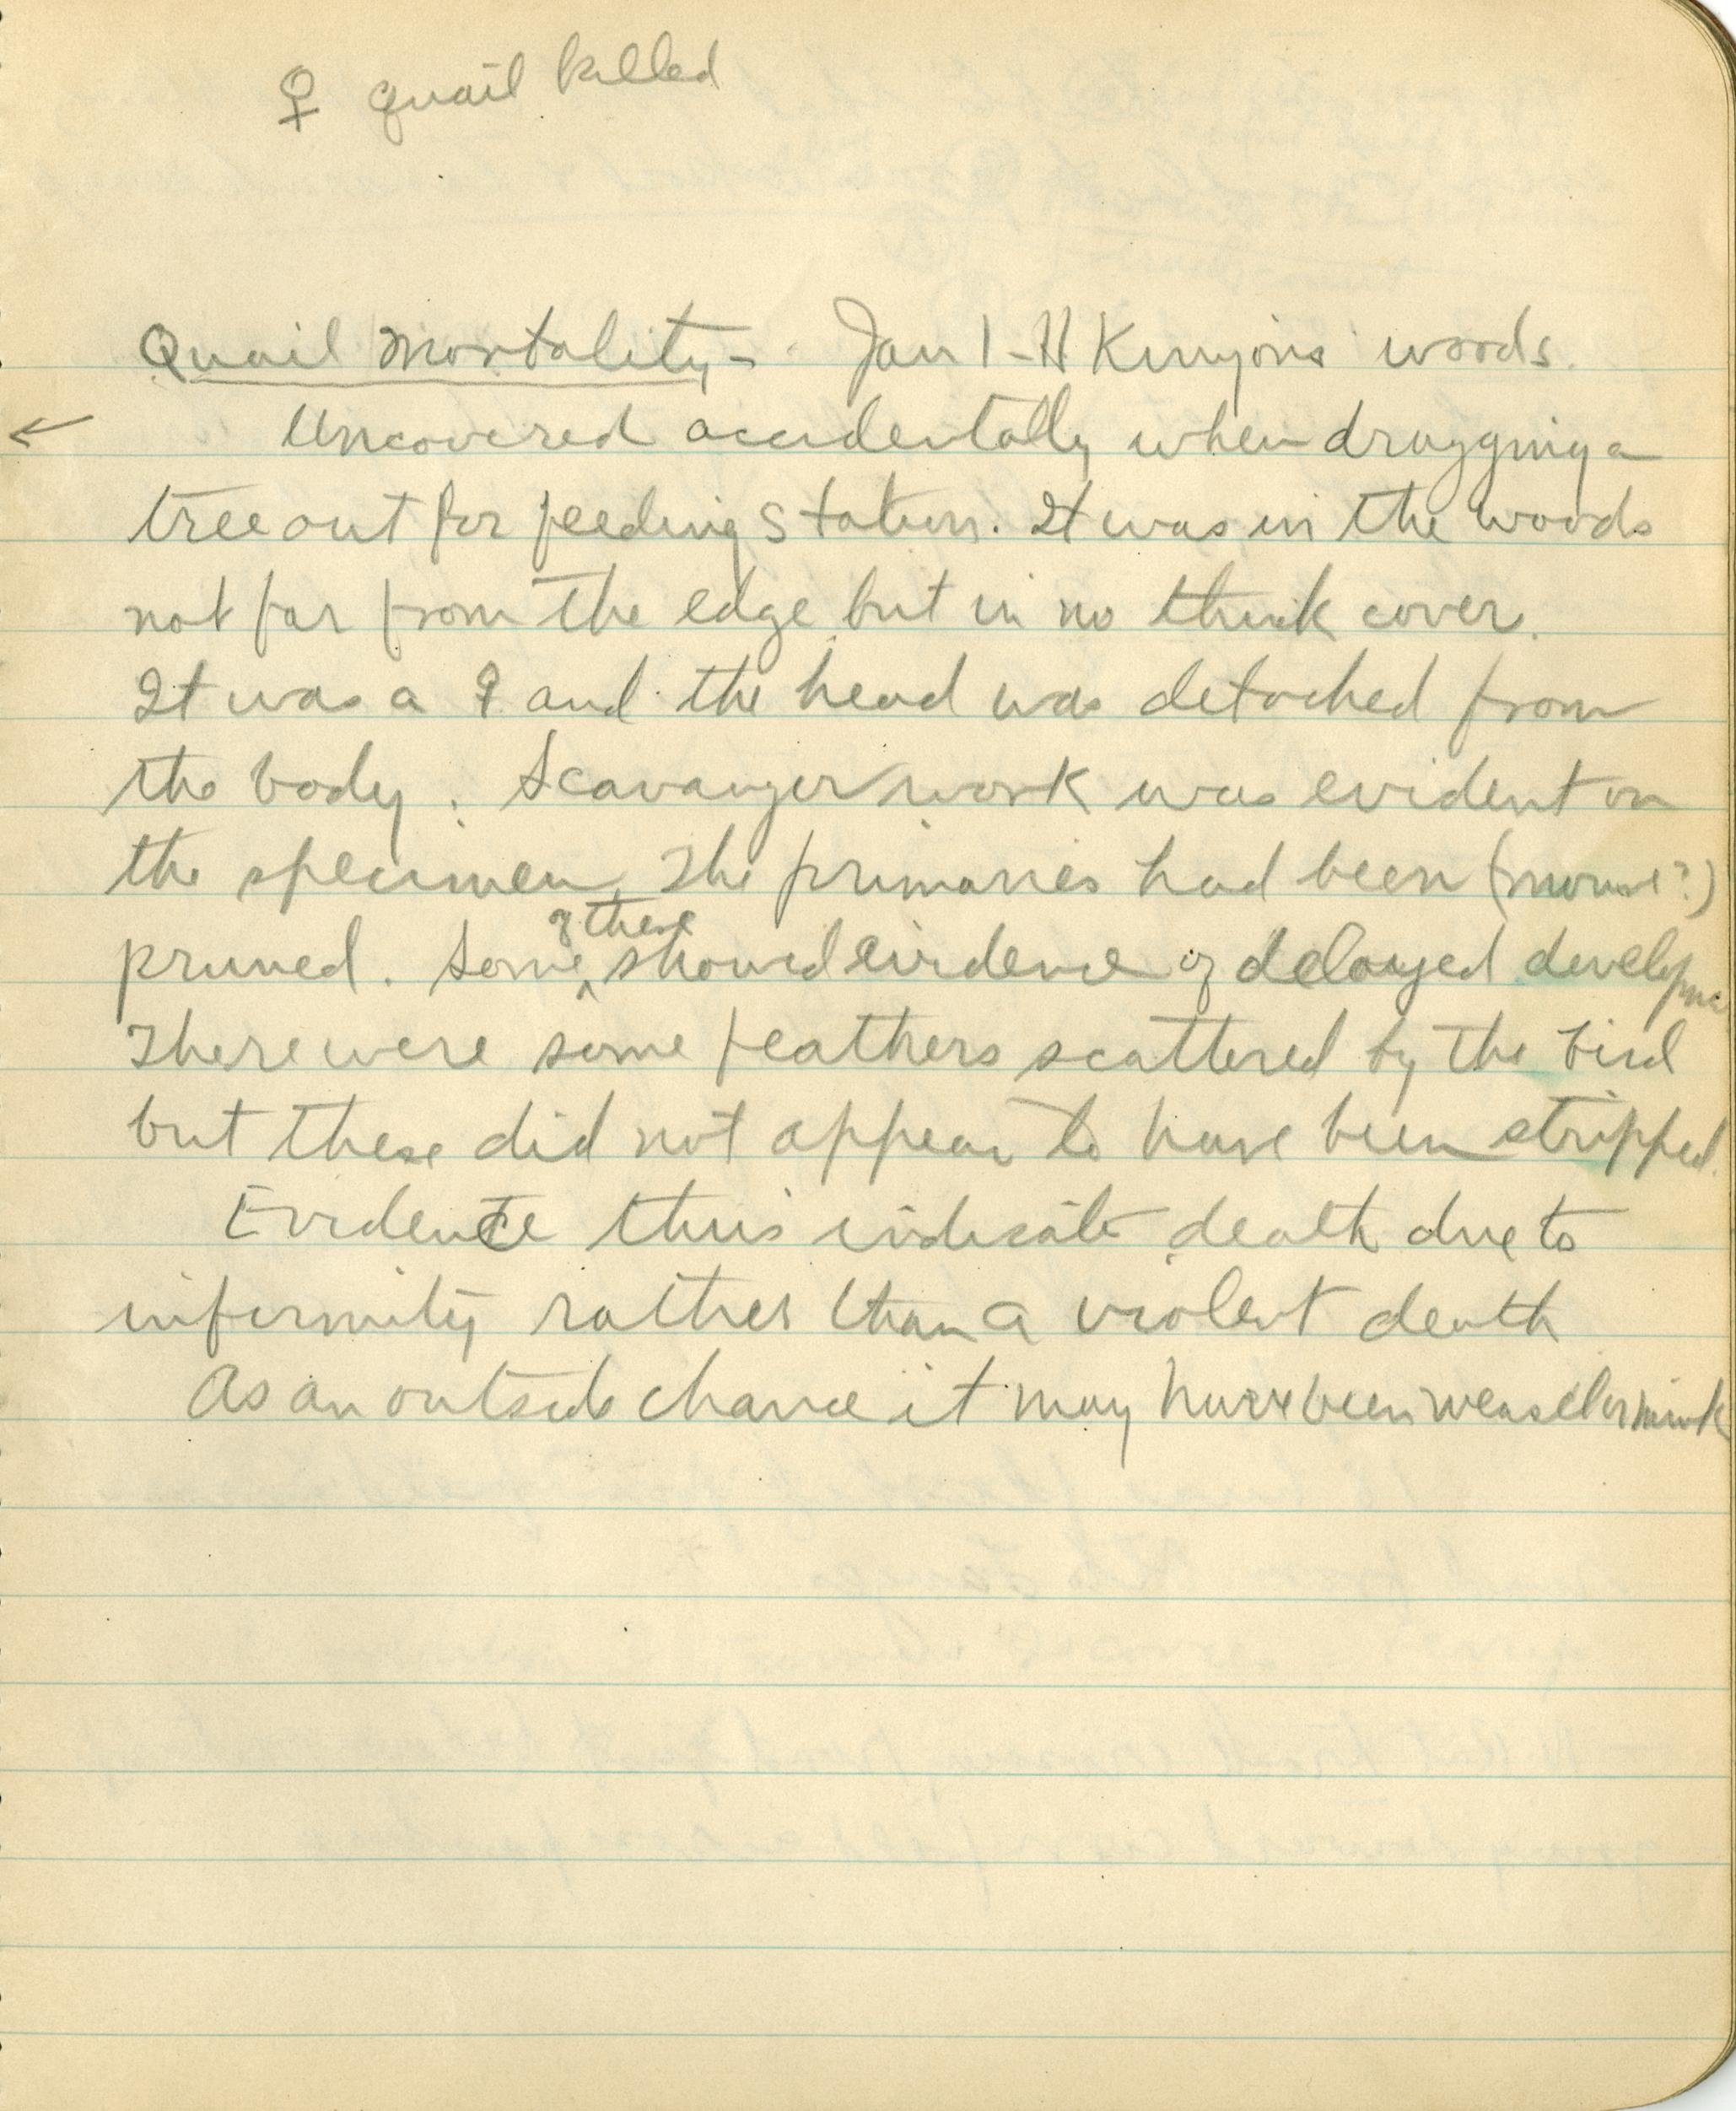 ♀ quail killed
Quail Mortality - Jan 1 - H Kenyon's woods.
← Uncovered accidentally when dragging a
tree out for feeding station. It was in the woods
not far from the edge but in no thick cover.
It was a ♀ and the head was detached from
the body. Scavanger work was evident on
the specimen. The primaries had been (mouse?)
of these
pruned. Some ^ showed evidence of delayed developme
There were some feathers scattered by the bird
but these did not appear to have been stripped.
Evidence thus indicate death due to
infirmity rather than a violent death
As an outside chance it may have been weasel or mink